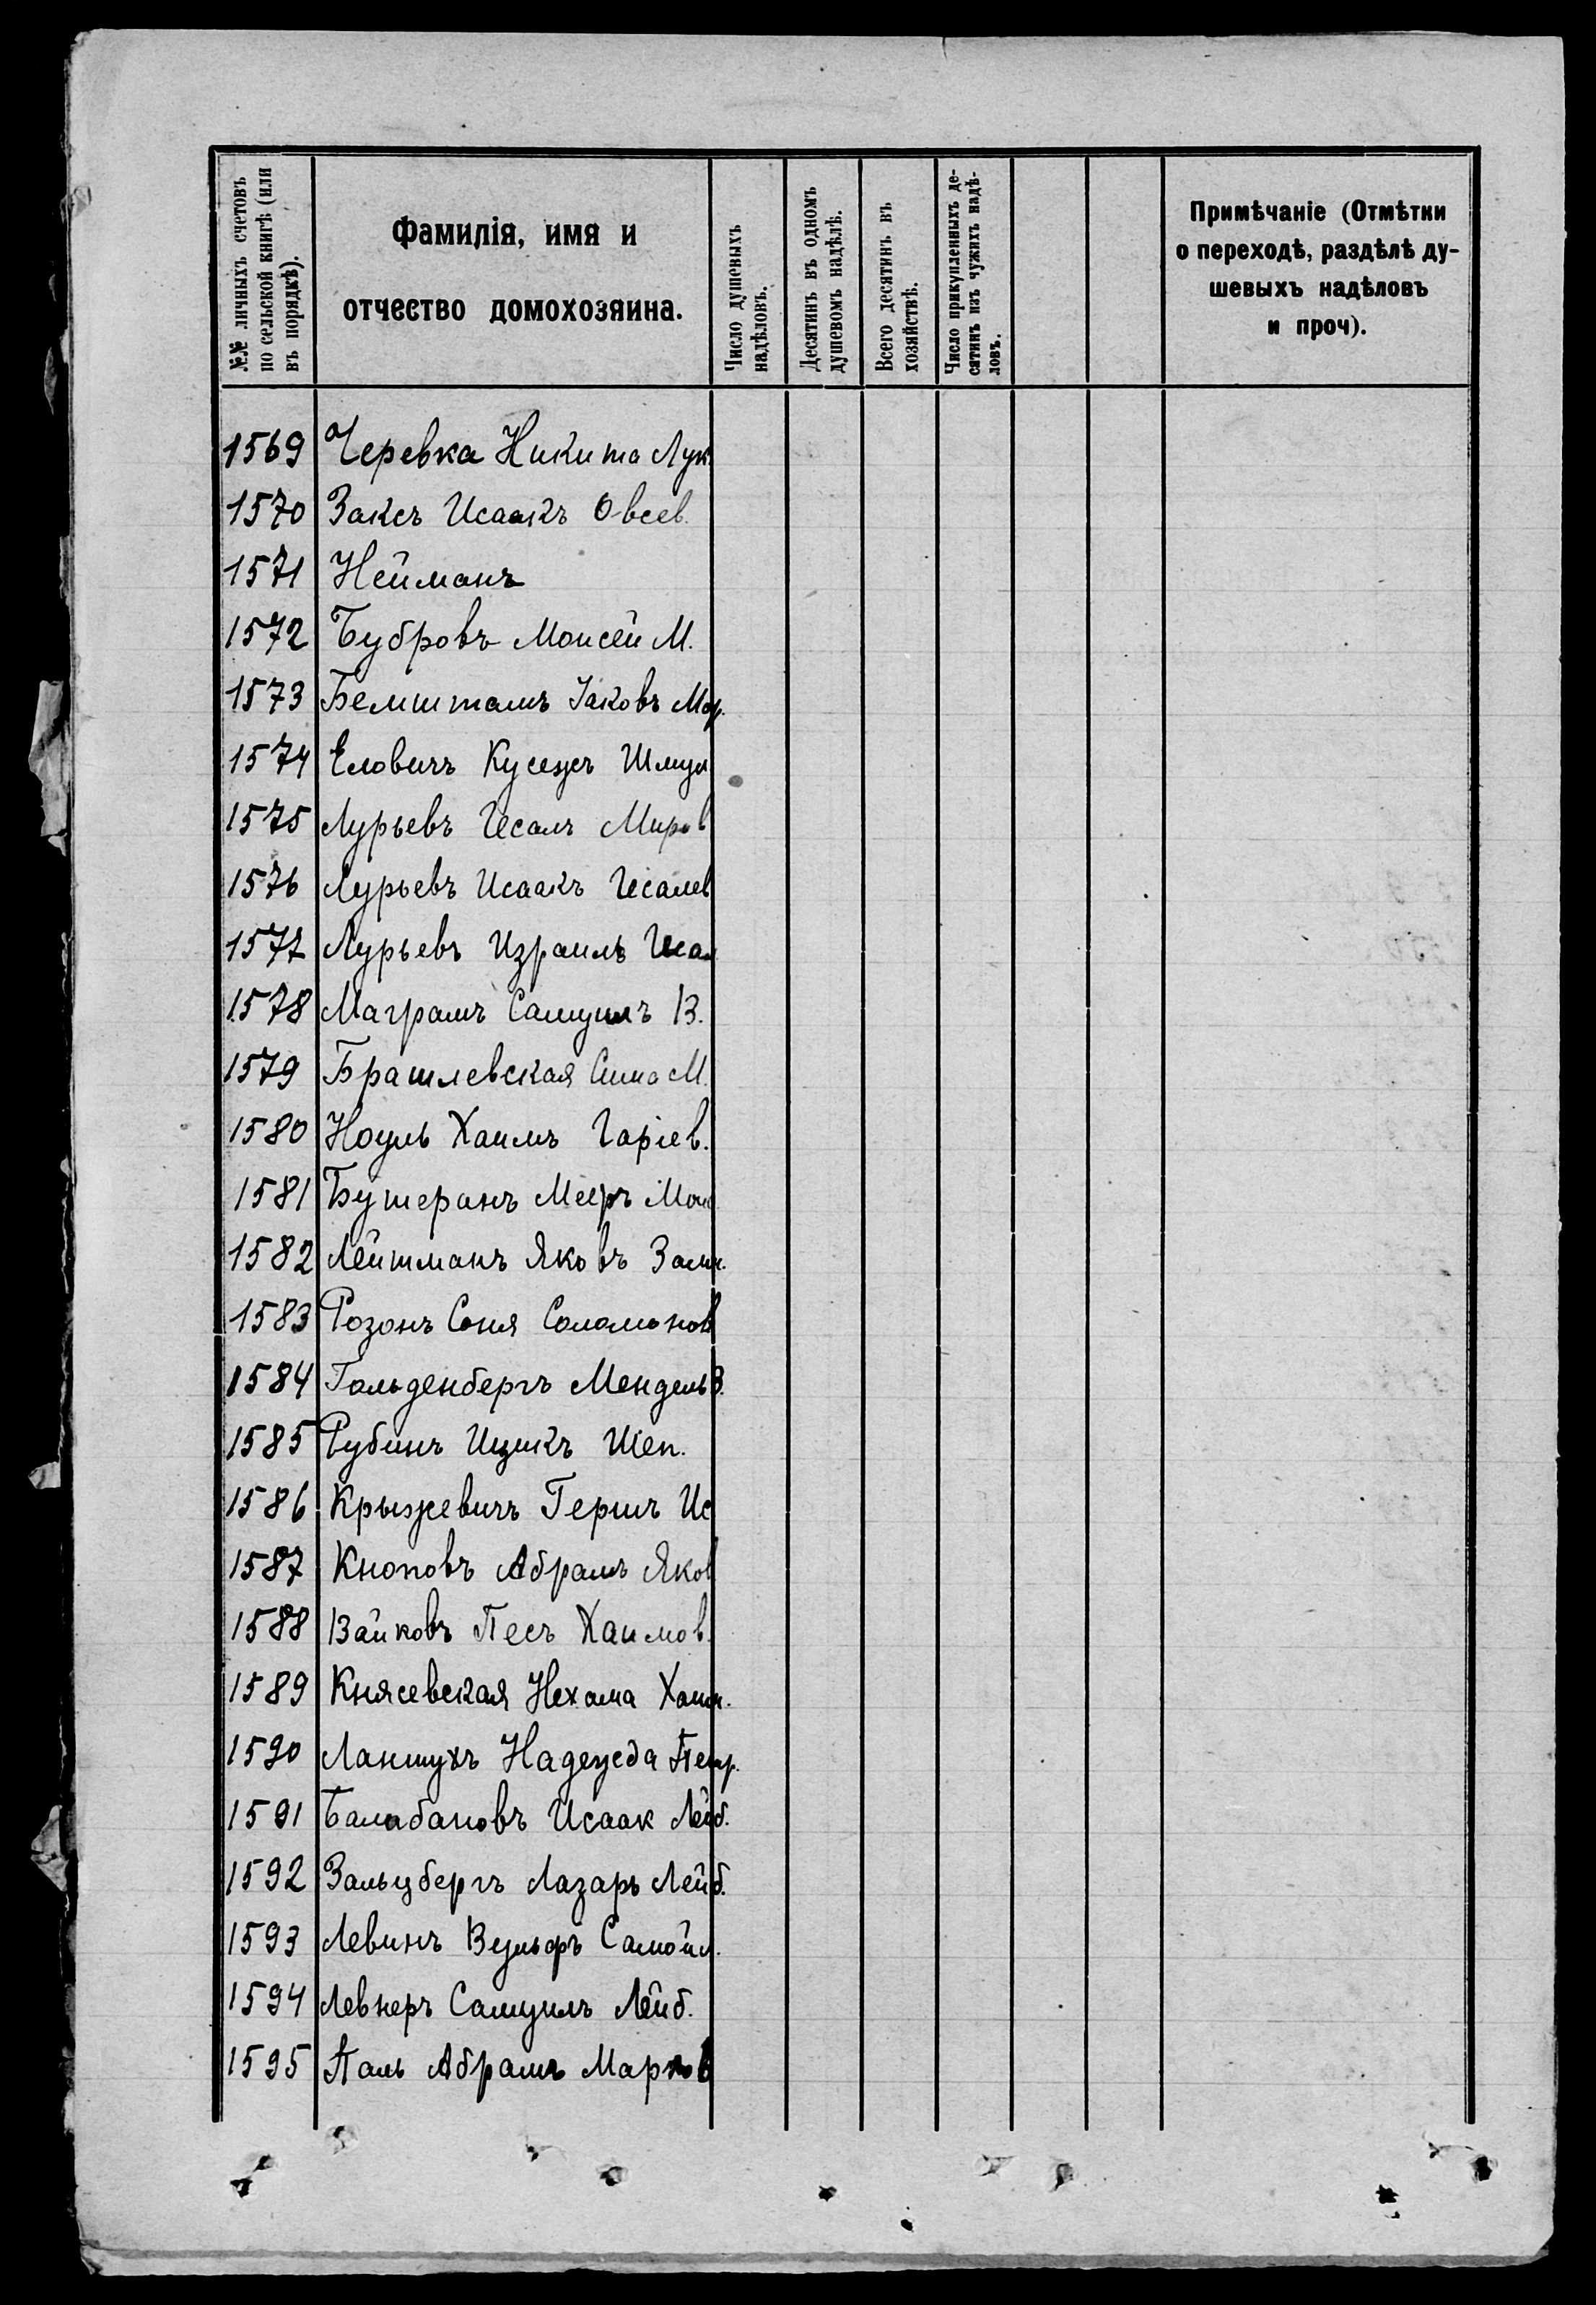 №№ личныхъ счетовъ
по сельской книгѣ (или
въ порядкѣ).
Фамилія, имя и
отчество домохозяина.
Число душевыхъ
надѣловъ.
Десятинъ въ одномъ
душевомъ надѣлѣ.
Всего десятинъ въ
хозяйствѣ.
Число прикупленныхъ де-
сятинъ изъ чужихъ надѣ-
ловъ.
Примѣчаніе (Отмѣтки
о переходѣ, раздѣлѣ ду-
шевыхъ надѣловъ
и проч).
1569 Черевка Никита Лук.
1570 Заксъ Исаакъ Овсев.
1571 Нейманъ
1572 Бубровъ Моисей М.
1573 Бемштамъ Іаковъ
1574 Еловичъ Шмул
1575 Лурьевъ Иесалъ Миров
1576 Лурьевъ Исаакъ Иесалев
1577 Лурьевъ Израиль Иеса
1578 Маграмъ Самуилъ В.
1579 Брашлевская Сима М.
1580 Ноуль Хаимъ Гаріев.
1581 Бутеранъ Мееръ Мои
1582 Лейтманъ Яковъ Залм.
1583 Розонъ Соня Соломонов
1584 Гольденбергъ Мендель З.
1585 Рубинъ Ицикъ Шеп.
1586 Крыжевичъ Гершъ Ис
1587 Кноповъ Абрамъ Яков
1588 Вайковъ Песъ Хаимов.
1589 Княсевская Нехама Хаим.
1590 Ланшухъ Надежда Петр.
1591 Балабановъ Исаак Лейб.
1592 Зальцбергъ Лазарь Лейб.
1593 Левинъ Вульфъ Самойл.
1594 Левнеръ Самуилъ Лейб.
1595 Паль Абрамъ Марков